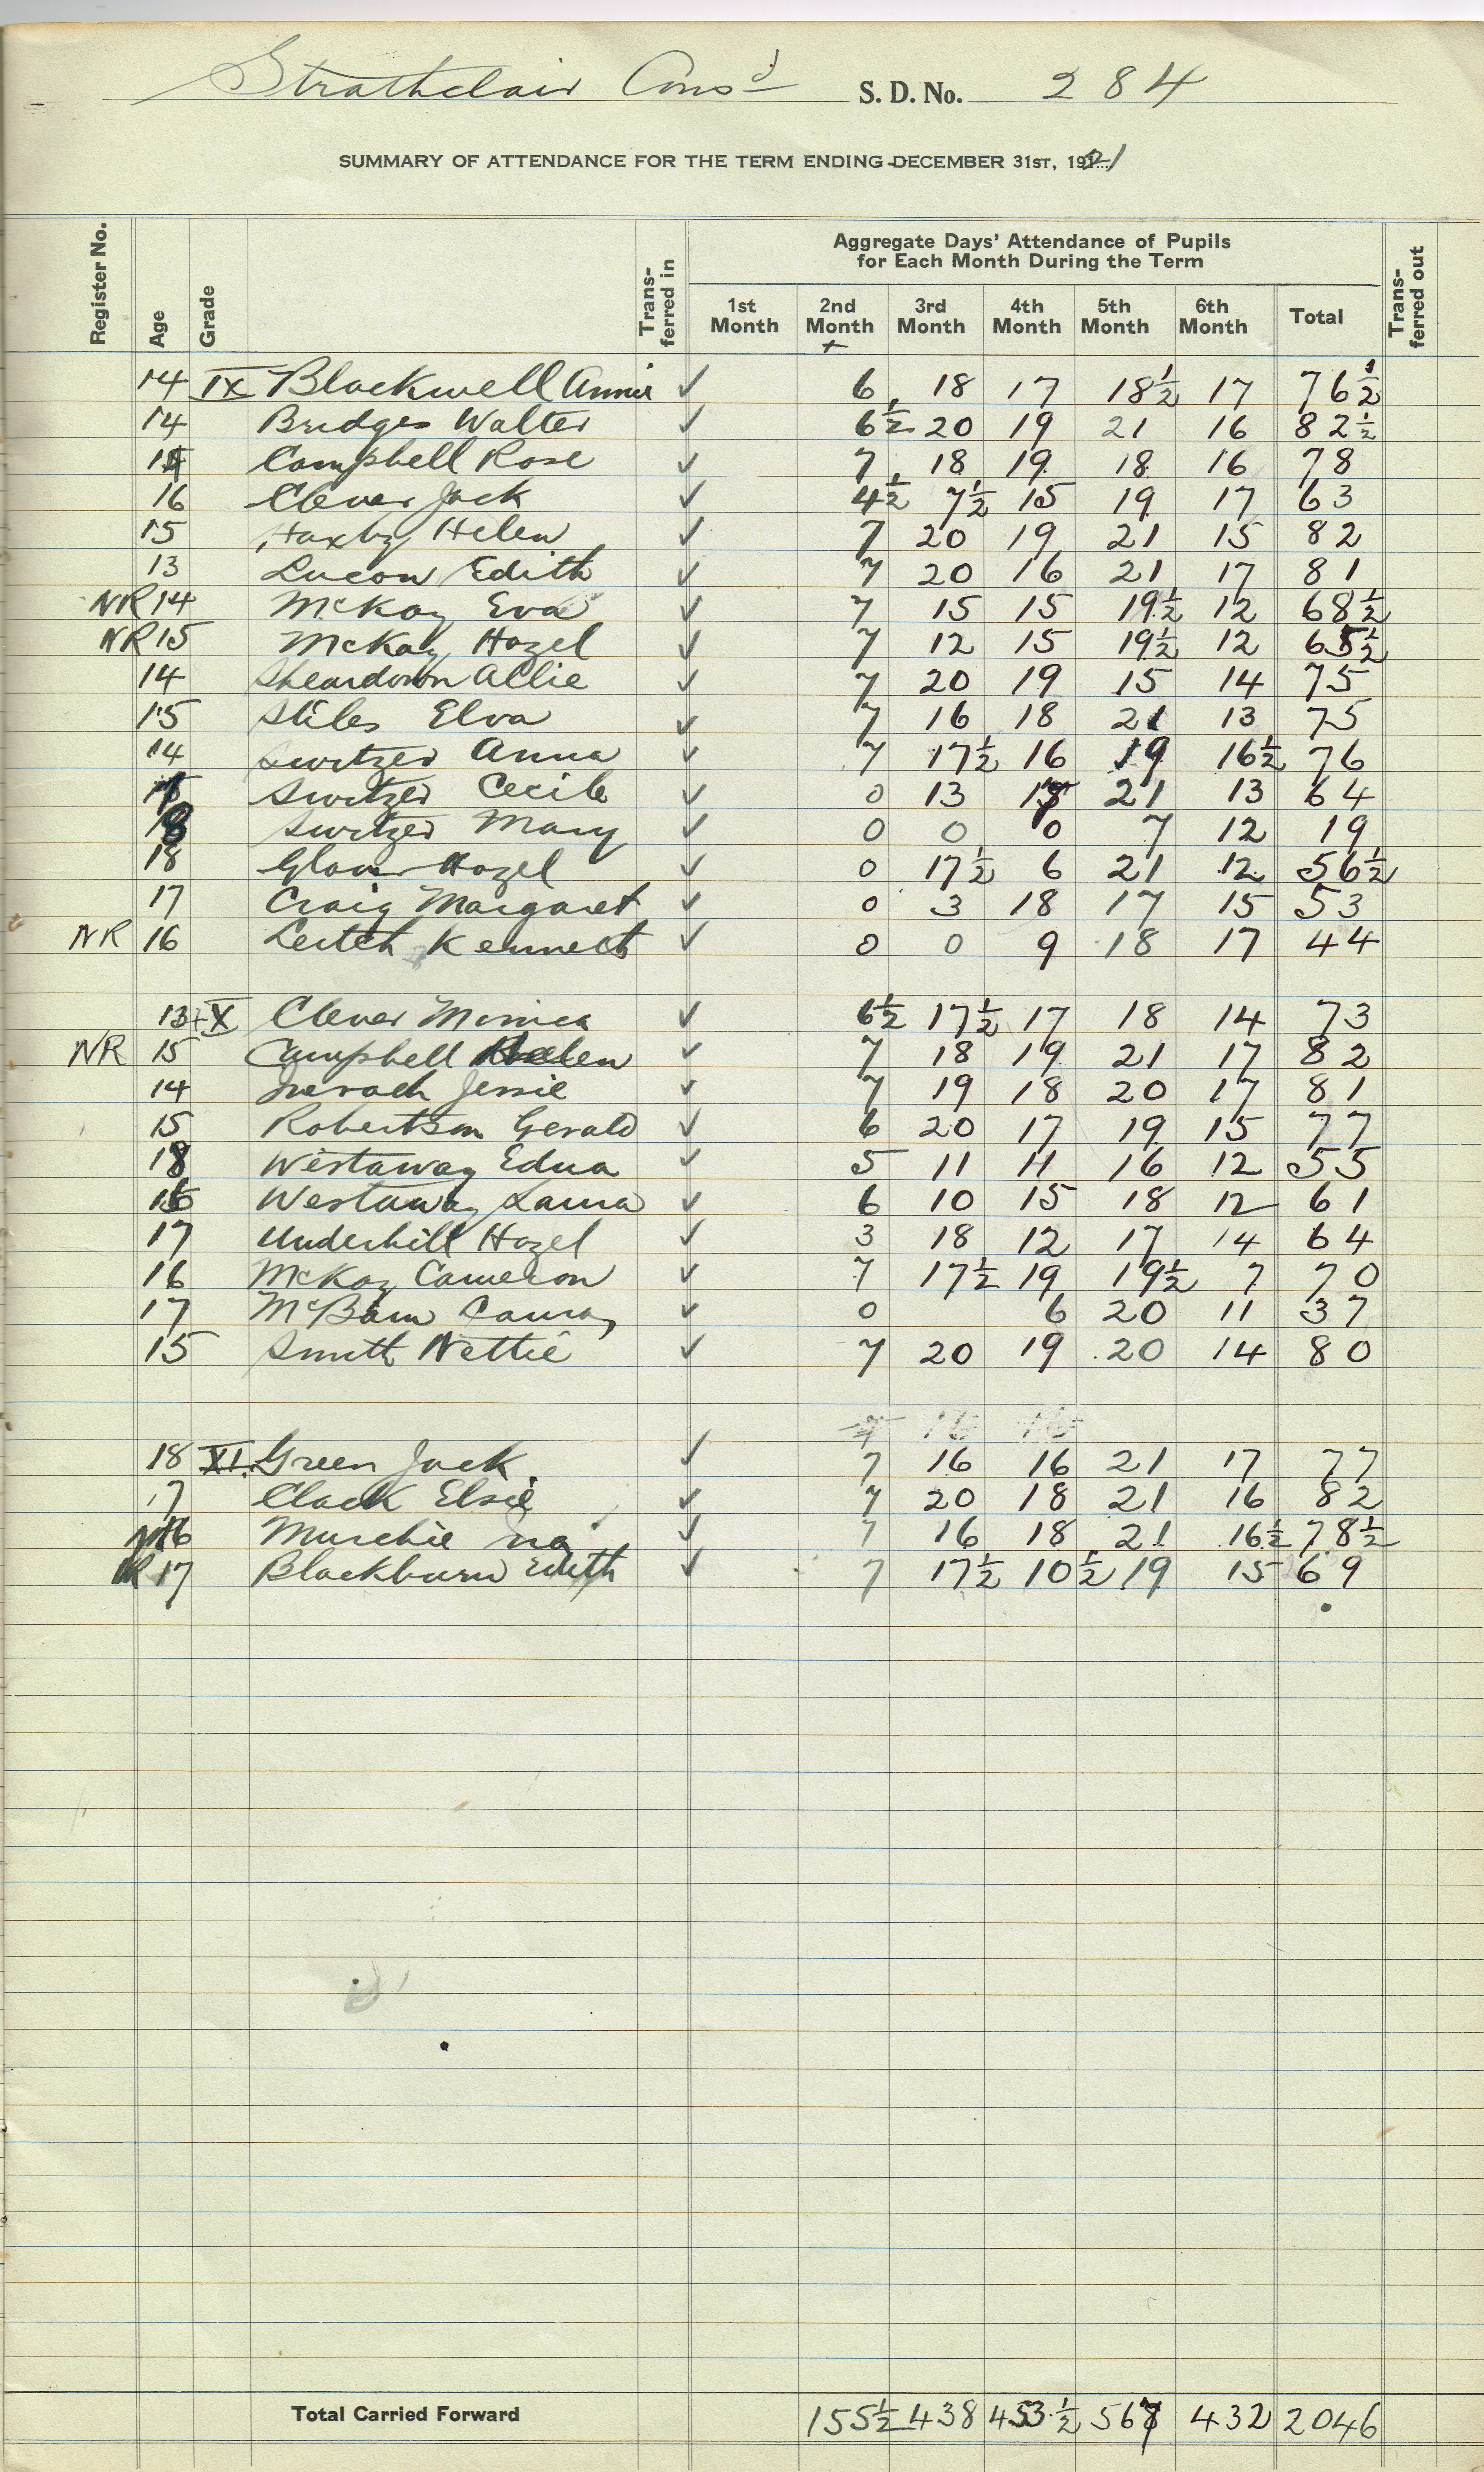 Strathclair Cons'd S. D. No. 284
SUMMARY OF ATTENDANCE FOR THE TERM ENDING DECEMBER 31ST, 1921
Aggregate Days' Attendance of Pupils
for Each Month During the Term
Register No. Age Grade Trans-ferred in 1st Month 2nd Month 3rd Month 4th Month 5th Month 6th Month Total Trans-ferred out
+
14 IX Blackwell Annie ✓ 6 18 17 18½ 17 76½
14 Bridges Walter ✓ 6½ 20 19 21 16 82½
Campbell Rose ✓ 7 18 19 18 16 78
16 Clever Jack ✓ 4½ 7½ 15 19 17 63
15 Haxby Helen ✓ 7 20 19 21 15 82
13 Lucow Edith ✓ 7 20 16 21 17 81
NR 14 McKay Eva ✓ 7 15 15 19½ 12 68½
NR 15 McKay Hazel ✓ 7 12 15 19½ 12 65½
14 Sheardown Allie ✓ 7 20 19 15 14 75
15 Stiles Elva ✓ 7 16 18 21 13 75
14 Switzer Anna ✓ 7 17½ 16 19 16½ 76
Switzer Cecile ✓ 0 13 17 21 13 64
18 Switzer Mary ✓ 0 0 0 7 12 19
18 Glover Hazel ✓ 0 17½ 6 21 12 56½
17 Craig Margaret ✓ 0 3 18 17 15 53
NR 16 Leitch Kenneth ✓ 0 0 9 18 17 44
13 X Clever Monica ✓ 6½ 17½ 17 18 14 73
NR 15 Campbell Helen ✓ 7 18 19 21 17 82
14 Jessie ✓ 7 19 18 20 17 81
15 Robertson Gerald ✓ 6 20 17 19 15 77
18 Westaway Edna ✓ 5 11 11 16 12 55
16 Westaway Laura ✓ 6 10 15 18 12 61
17 Underhill Hazel ✓ 3 18 12 17 14 64
16 McKay Cameron ✓ 7 17½ 19 19½ 7 70
17 McBain ✓ 0 6 20 11 37
15 Smith Nettie ✓ 7 20 19 20 14 80
18 XI. Green Jack ✓ 7 16 16 21 17 77
17 Clack Elsie ✓ 7 20 18 21 16 82
NR 16 Murchie Ina ✓ 7 16 18 21 16½ 78½
R 17 Blackburn Edith ✓ 7 17½ 10½ 19 15 69
Total Carried Forward 155½ 438 453½ 567 432 2046